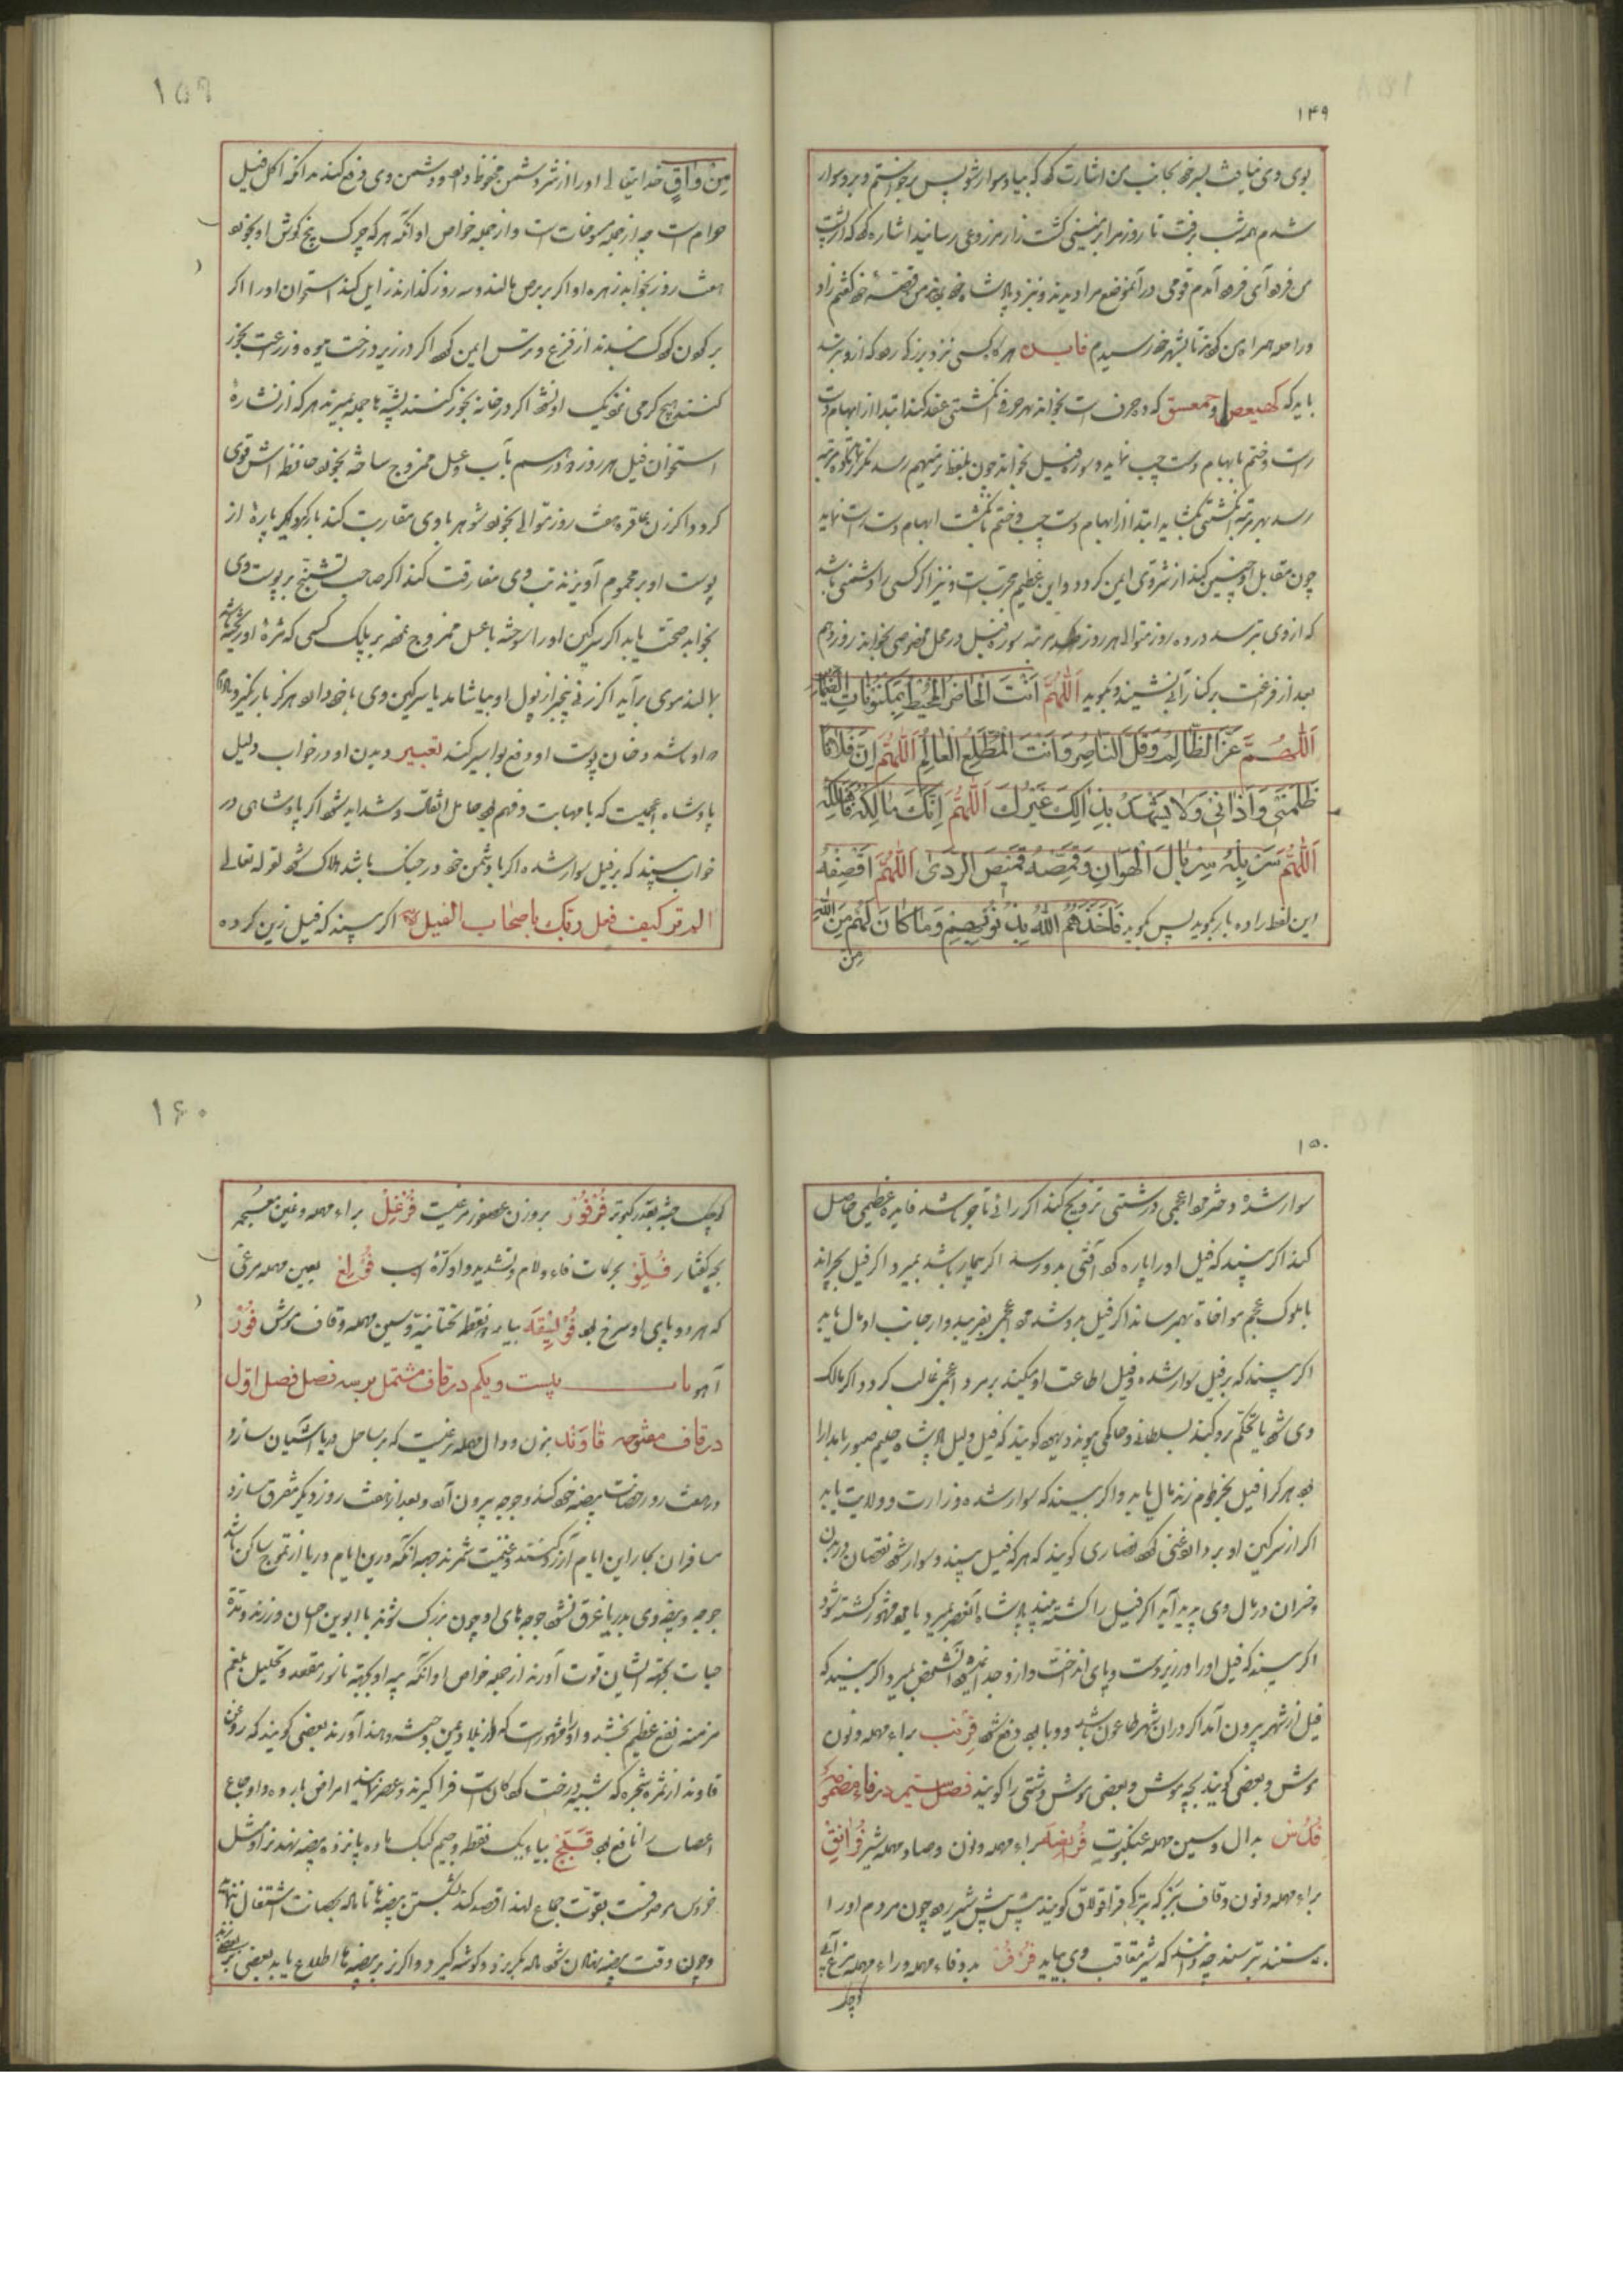 ۱۴۹
بوی وی نیافت پس بجانب من اشارت کرد که بیا و سوار شو پس برخواستم و برو سوار
شدم همه شب برفت تا روز مرا بزمینی کشت زار مزروعی رسانید اشاره کرد که از پشت
من فرود آی فرود آمدم قومی در آنموضع مرا دیدند و نزد پادشاه خود بردند من قصه خود گفتم زاد
و راحله همراه من کردند تا بشهر خود رسیدم فایده هر گاه کسی نزد بزرگی رود که ازو ترسد
باید که کهیعص و حمعسق که ده حرف است بخواند بهر حرفی انگشتی عقد کند ابتدا از ابهام دست
راست و ختم بابهام دست چپ نماید و سوره فیل بخواند چون بلفظ ترمیهم رسد
رسد بهر مرتبه انگشتی بگشاید ابتدا از ابهام دست چپ و ختم بانگشت ابهام دست راست نماید
چون مقابل او چنین کند از شر وی ایمن گردد و این عظیم مجربست و نیز اگر کسی را دشمنی باشد
که از وی بترسد در ده روز متوالی هر روز مرتبه سوره فیل در محل مخصوصی بخواند روز دهم
بعد از فراغت بر کنار آبی نشیند و بگوید اَللّٰهُمَّ اَنْتَ الْحَاضِرُ الْمُحِیطُ بِمَکْنُونَاتِ الضَّمَائِرِ
اَللّٰهُمَّ عَزَّ الظَّالِمُ وَقَلَّ النَّاصِرُ وَاَنْتَ الْمُطَّلِعُ الْعَالِمُ اَللّٰهُمَّ اِنَّ فُلَانًا
ظَلَمَنِی وَاَذَانِی وَلَا یَشْهَدُ بِذٰلِکَ غَیْرُکَ اَللّٰهُمَّ اِنَّکَ مَالِکُهُ فَاَهْلِکْهُ
اَللّٰهُمَّ سَرْبِلْهُ سِرْبَالَ الْهَوَانِ وَقَمِّصْهُ قَمِیصَ الرَّدٰی اَللّٰهُمَّ اَقْصِفْهُ
این لفظ را ده بار بگوید پس بگوید فَاَخَذَهُمُ اللّٰهُ بِذُنُوبِهِمْ وَمَا کَانَ لَهُمْ مِنَ اللّٰهِ
مِن
۱۵۹
مِنْ وَاقٍ خدایتعالی او را از شر دشمن محفوظ دارد و دشمن وی دفع کند بدانکه اکل فیل
حرام است چه از جمله مسوخات است و از جمله خواص او آنکه هر که چرک بیخ گوش او بخورد
هفت روز بخوابد زهره او اگر بر برص مالند و سه روز گذارند زایل کند استخوان او را اگر
بر گردن کودک بندند از فزع و ترس ایمن گردد اگر در زیر درخت میوه و زراعت بخور
کنند هیچ کرمی نزدیک او نشود اگر در خانه بخور کنند پشه ها جمله بمیرند هر که از نشاره
استخوان فیل هر روز دو درم بآب و عسل ممزوج ساخته بخورد حافظه اش قوی
گردد و اگر زن عاقره هفت روز متوالی بخورد و شوهر با وی مقاربت کند بار گیرد اگر پاره از
پوست او بر محموم آویزند تب وی مفارقت کند اگر صاحب تشنج بر پوست وی
بخوابد صحت یابد اگر سرگین او را سوخته با عسل ممزوج نموده بر پلک کسی که مژه او ریخته باشد
بمالند موی برآید اگر زنی بیخبر از بول او بیاشامد یا سرگین وی با خود دارد هرگز بار نگیرد
او باشد و دخان پوست او دفع بواسیر کند تعبیر دیدن او در خواب دلیل
پادشاه عجمیست که با مهابت و فهم بود حامل اثقال و شداید شود اگر پادشاهی در
خواب بیند که بر فیل سوار شده اگر با دشمن خود در جنگ باشد هلاک شود لقوله تعالی
الم تر کیف فعل ربک باصحاب الفیل اگر بیند که فیل زین کرده
۱۵۰
سوار شده دختر مرد عجمی درشتی تزویج کند اگر رائی تاجر باشد فایده عظیمی حاصل
کند اگر بیند که فیل او را پاره کرد آفتی بدو رسد اگر بیمار باشد بمیرد اگر فیل بچراند
با ملوک عجم مواخاة بهم رساند اگر فیل بدوشد مرد عجمی بفریبد و از جانب او مال یابد
اگر بیند که بر فیل سوار شده و فیل اطاعت او میکند بر مرد عجمی غالب گردد و اگر مالک
وی شود یا تحکم برو کند بسلطانی و حاکمی پیوندد یهود گویند که فیل دلیل پادشاه حلیم صبور با مدارا
بود هر کرا فیل بخرطوم زند مال یابد و اگر بیند که سوار شده وزارت و ولایت یابد
اگر از سرگین او بردارد غنی گردد نصاری گویند که هر که فیل بیند و سوار شود نقصان در بدن
و خسران در مال وی پدید آید اگر فیل را کشته بیند پادشاه آنعصر بمیرد یا مرد مشهور کشته شود
اگر بیند که فیل او را در زیر دست و پای انداخت و ازو جدا نشد آنشخص بمیرد اگر بیند که
فیل از شهر بیرون آمد اگر در آن شهر طاعون باشد و وبا بود دفع شود فِرْنِب براء مهمله و نون
موش و بعضی گویند بچه موش و بعضی موش دشتی را گویند فصل سیم در فاء مضمومه
فُدُس بدال و سین مهمله عنکبوت فُرَانِصَه براء مهمله و نون و صاد مهمله شیر فُرَانِق
براء مهمله و نون و قاف ببر که بترکی قراقولاق گویند پیش پیش شیر رود چون مردم او را
ببینند بترسند چه دانند که شیر متعاقب وی بیاید فُرْفُر بدو فاء و دو راء مهمله مرغ آبی
کوچک
۱۶۰
کوچک جثه بقدر کبوتر فُرْفُور بر وزن عصفور مرغیست فُرْغُل براء مهمله و غین معجمه
بچه کفتار فُلُوّ بحرکات فاء و لام و تشدید واو کره اسب فُرَاغ بعین مهمله مرغی
که هر دو پای او سرخ بود فُوَیْسِقَه بیاء دو نقطه تحتانیة و سین مهمله و قاف موش فُوْر
آهو باب بیست و یکم در قاف مشتمل بر سه فصل فصل اول
در قاف مفتوحه قَاوَنْد بنون و دال مهمله مرغیست که بر ساحل دریا آشیان سازد
و هفت روز حضانت بیضه خود کند و جوجه بیرون آورد و بعد از هفت روز دیگر متفرق سازد
مسافران بحار این ایام آرزو کنند و غنیمت شمرند جهة آنکه درین ایام دریا از تموج ساکن باشد
جوجه و بیضه وی بدریا غرق نشود جوجه های او چون بزرگ شوند با ابوین احسان ورزند و مدة
حیات بجهة ایشان قوت آورند از جمله خواص او آنکه پیه او بجهة ناسور مقعد و تحلیل بلغم
مزمنه نفع عظیم بخشد و او را مشهور است که از بلاد یمن و حبشه و هند آورند بعضی گویند که روغن
قاوند از ثمره شجره که شبیه درخت گردکانست فراگیرند و عصر نمایند امراض بارده و اوجاع
اعصاب را نافع بود قَبَج بباء یک نقطه و جیم کبک ماده پانزده بیضه نهد نر او مثل
خروس موصوفست بقوت جماع لهذا قصد کند بشکستن بیضه ها تا ماده بحضانت اشتغال ننماید
و چون وقت بیضه نهادن شود ماده بگریزد و گوشه گیرد و اگر نر بر بیضه ها اطلاع یابد بعضی